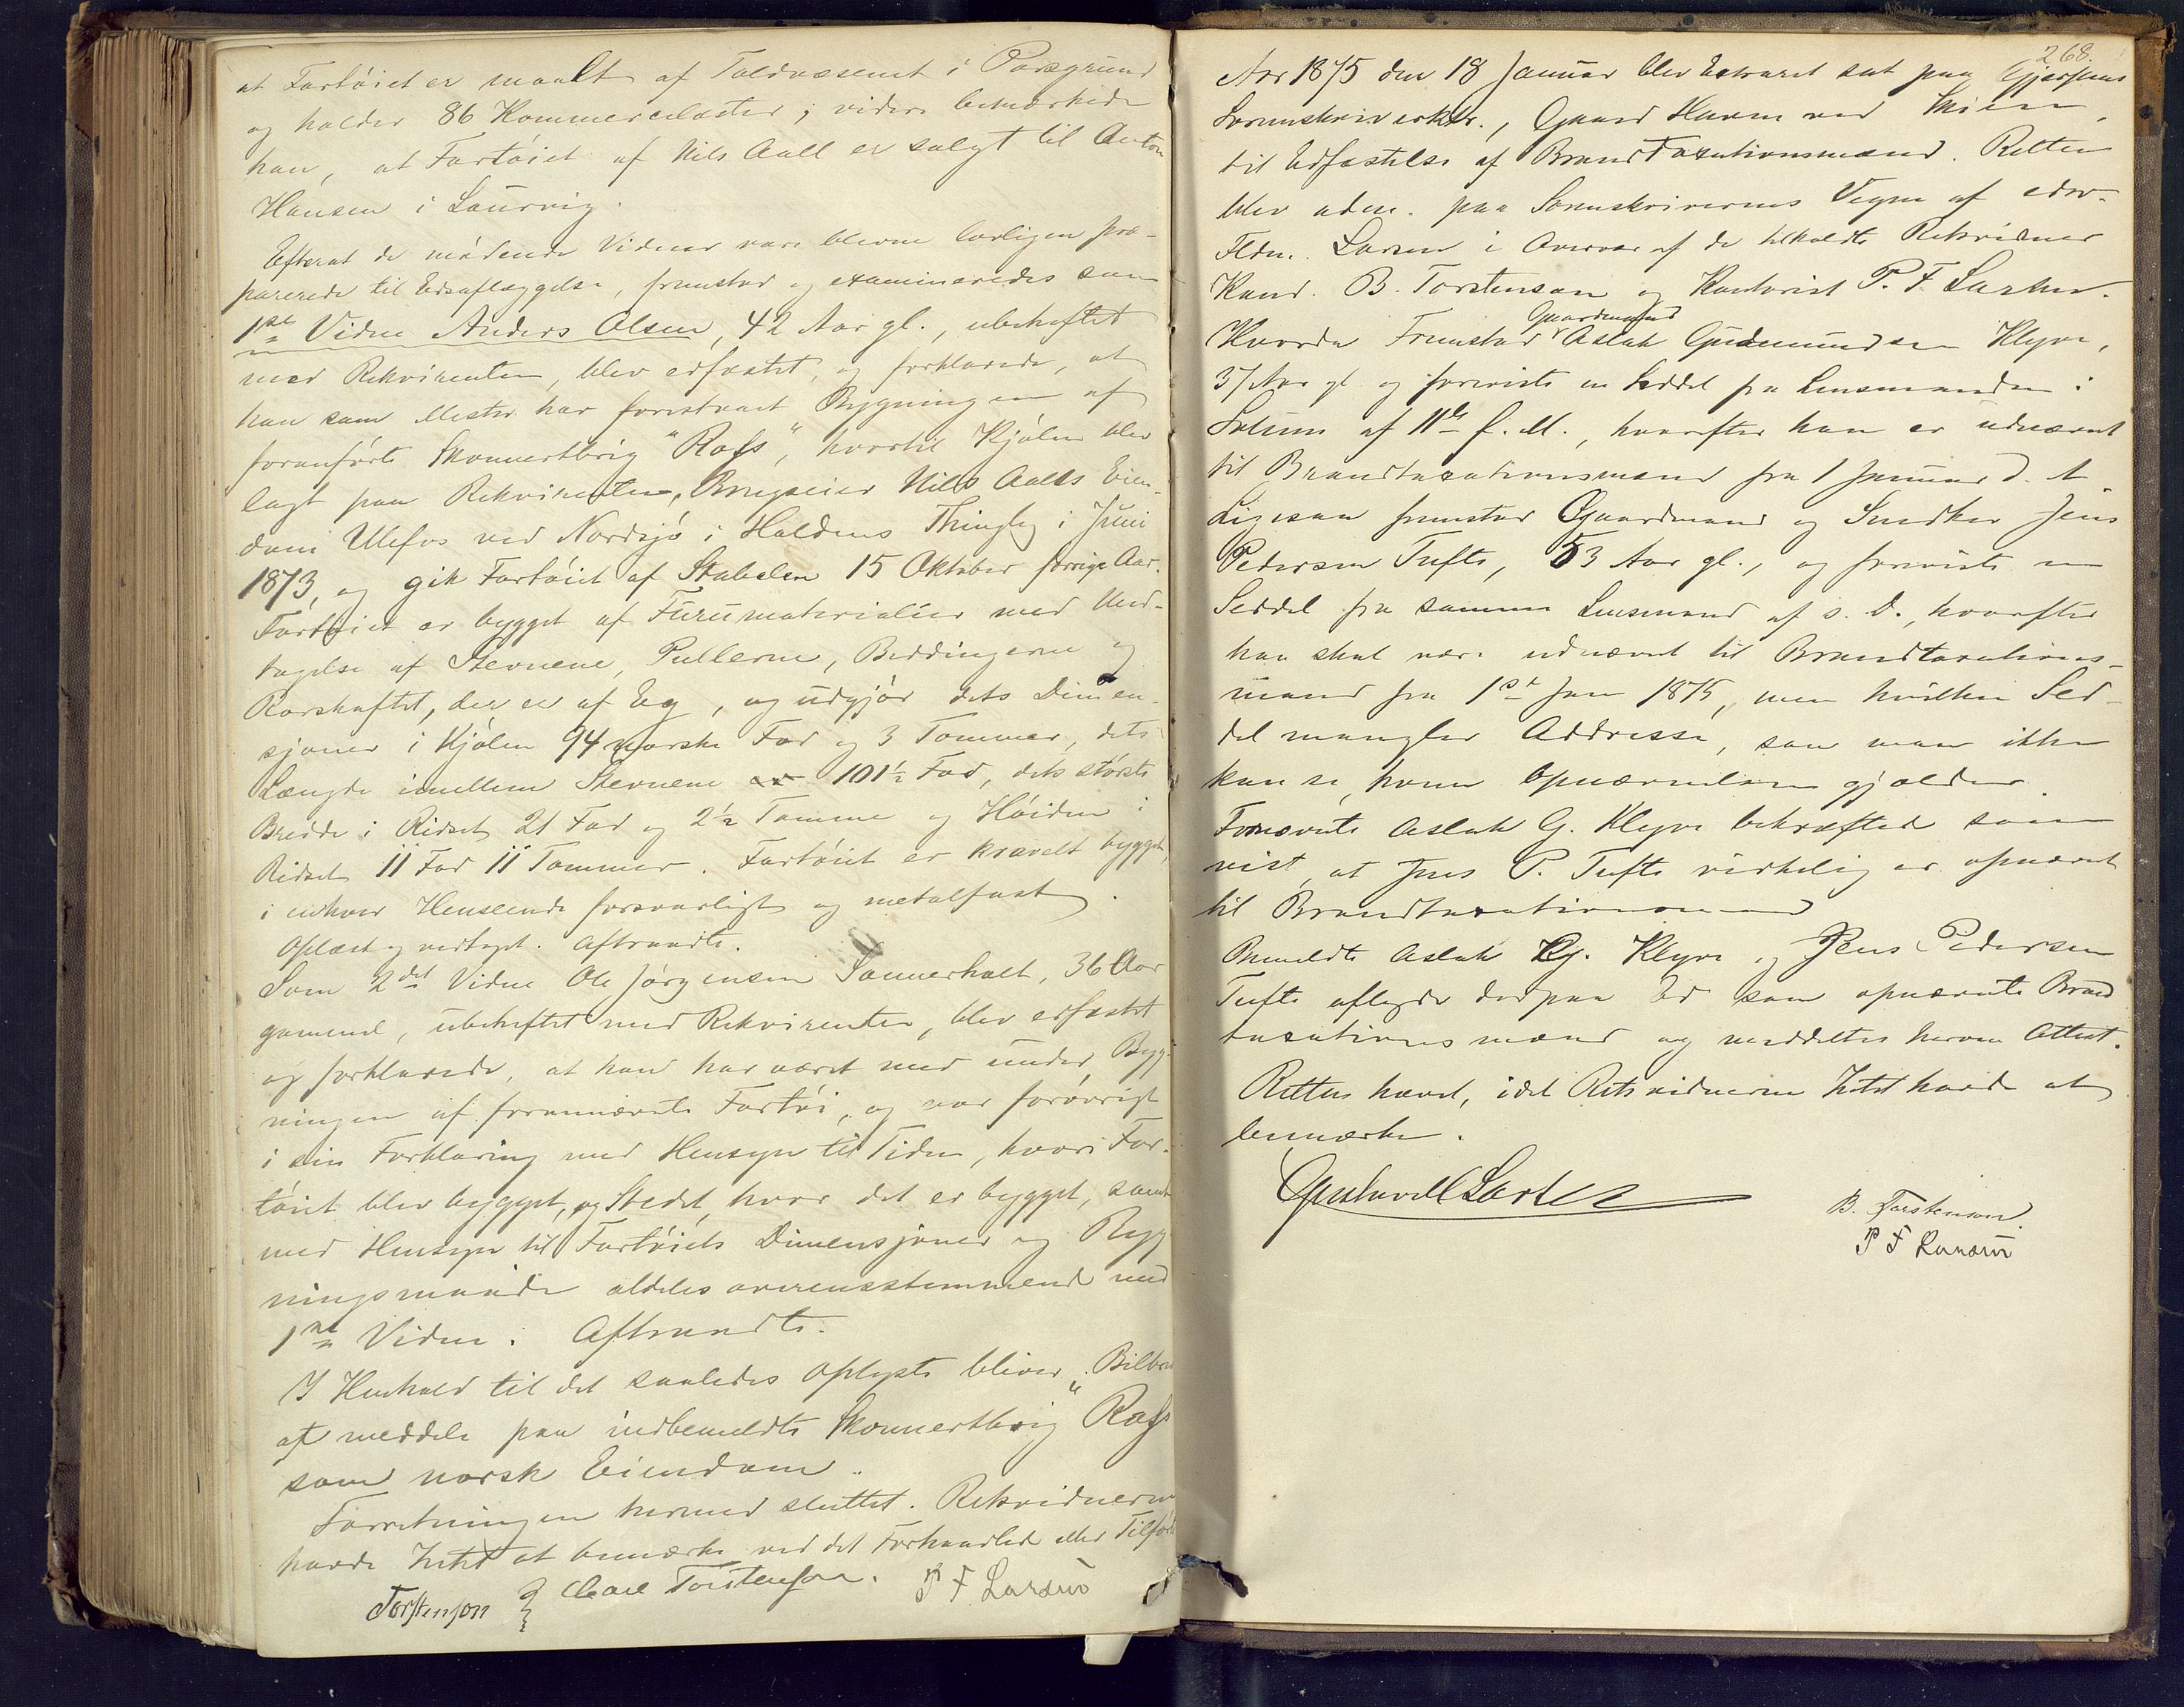 at Fartøiet er maalt af Toldvæsenet i Porsgrund
og holder 86 Kommercelæster; videre bemærkede
han, at Fartøiet af Nils Aall er solgt til Anton
Hansen i Laurvig.
Efterat de mødende Vidner vare blevne lovligen præ-
parerede til Edsaflæggelse, fremstod og examineredes som
1ste Vidne Anders Olsen, 42 Aar gl., ubeheftet
med Rekvirenten, blev edfæstet, og forklarede, at
han som Mester har forestaaet Bygningen af
foranførte Skonnertbrig "Rap", hvortil Kjølen blev
lagt paa Rekvirenten, Brugseier Nils Aalls Eien-
dom Ulefos ved Nordsjø i Holdens Thinglag i Juni
1873, og gik Fartøiet af Stabelen 15 Oktober forrige Aar.
Fartøiet er bygget af Furumaterialier med Und-
tagelse af Stevnene, Pullerne, Beddingerne og
Rorskaftet, der er af Eg, og udgjør dets Dimen-
sjoner i Kjølen 94 norske Fod og 3 Tommer, dets
Længde imellem Stevnene 101½ Fod, dets største
Bredde i Ridset 21 Fod og 2½ Tomme og Høiden i
Ridset 11 Fod 11 Tommer. Fartøiet er kravelt bygget,
i enhver Henseende forsvarligt og metalfast.
Oplæst og vedtaget. Aftraadte.
Som 2det Vidne Ole Jørgensen Sannerholt, 36 Aar
gammel, ubeheftet med Rekvirenten, blev edfæstet
og forklarede, at han har været med under Byg-
ningen af forannævnte Fartøi, og var forøvrigt
i sin Forklaring med Hensyn til Tiden, hvori Far-
tøiet blev bygget, og Stedet, hvor det er bygget, samt
med Hensyn til Fartøiets Dimensjoner og Byg-
ningsmaade aldeles overensstemmende med
1ste Vidne. Aftraadte.
I Henhold til det saaledes Oplyste bliver Bilbrev
at meddele paa indbemeldte Skonnertbrig "Rap"
som norsk Eiendom.
Forretningen hermed sluttet. Retsvidnerne
havde Intet at bemærke ved det Forhandlede eller Tilførte
Torstenson Carl Torstenson. P F Larsen
268.
Aar 1875 den 18 Januar blev Extraret sat paa Gjerpens
Sorenskriverktr., Gaard Haven ved Skien,
til Edfæstelse af Brandtaxationsmænd. Retten
blev adm. paa Sorenskriverens Vegne af edsv.
Fldm. Larsen i Overvær af de tilkaldte Retsvidner
Kand. B. Torstenson og Kontorist P. F. Larsen.
Hvorda Fremstod Gaardmand Aslak Gudmundsen Klyve,
37 Aar gl. og foreviste en Seddel fra Lensmanden i
Solum af 11te f. M., hvorefter han er udnævnt
til Brandtaxationsmand fra 1 Januar d. A.
Ligesaa fremstod Gaardmand og Snedker Jens
Pedersen Tufte, 53 Aar gl., og foreviste en
Seddel fra samme Lensmand af s. D., hvorefter
han skal være udnævnt til Brandtaxations-
mand fra 1st Jan 1875, men hvilken Sed-
del mangler Addresse, saa man ikke
kan se, hvem Opnævnelsen gjælder.
Fornævnte Aslak G. Klyve bekræftede som
vist, at Jens P. Tufte virkelig er opnævnt
til Brandtaxationsmand
Bemeldte Aslak G. Klyve og Jens Pedersen
Tufte aflagde derpaa Ed som opnævnte Brand
taxationsmænd og meddeltes herom Attest.
Retten hævet, idet Retsvidnerne Intet havde at
bemærke.
B. Torstenson.
P F Larsen